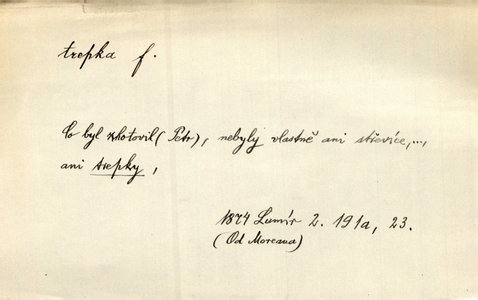 trepka f.
Co byl zhotovil (Petr), nebyly vlastně ani střevíce, ...,
ani trepky,
1874 Lumír 2. 191a, 23.
(Od Moreaua)